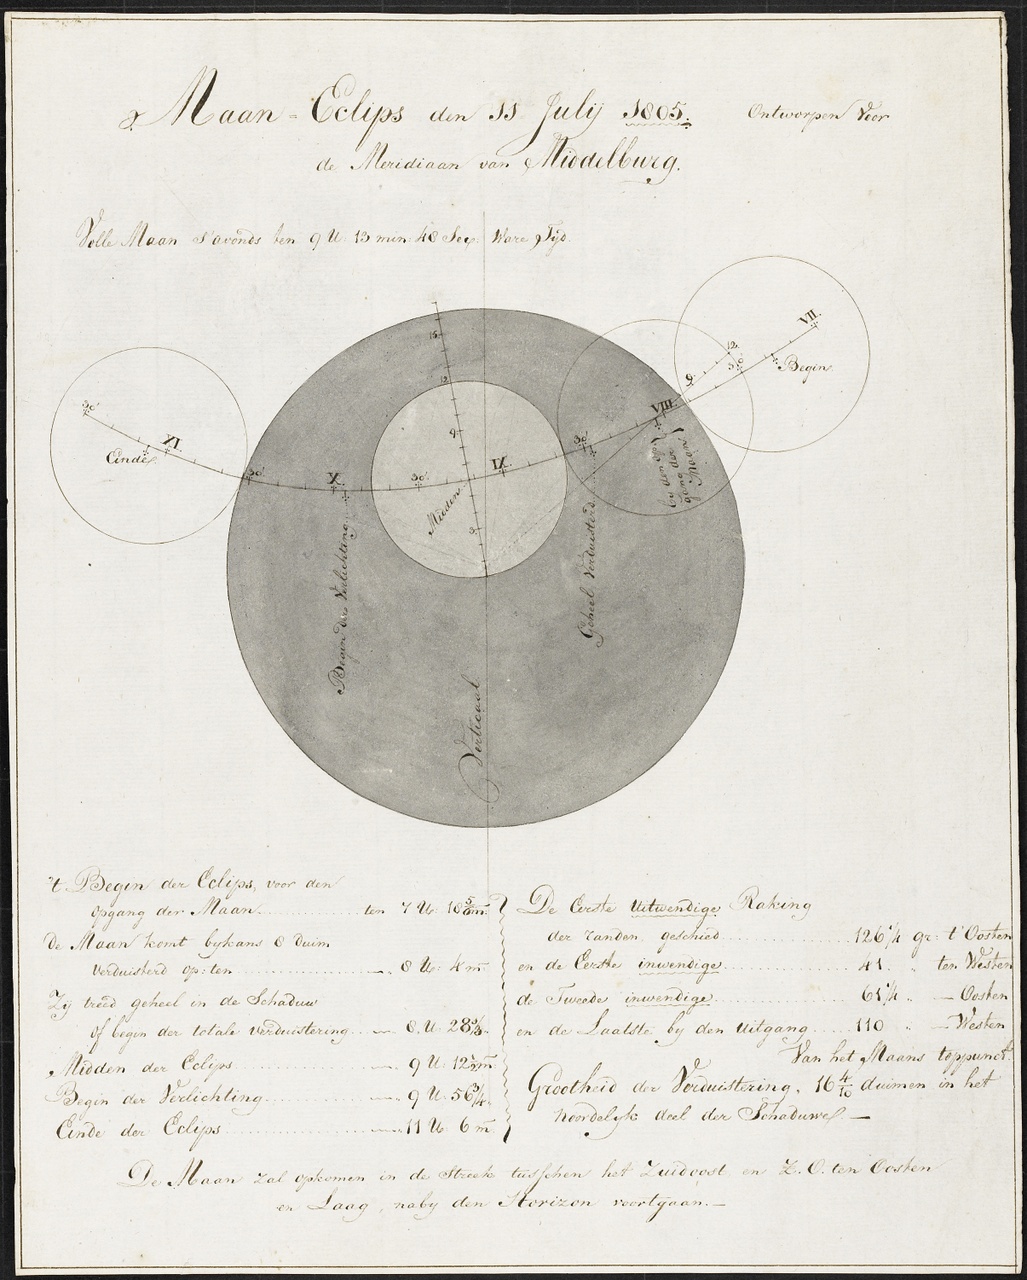 Maan-Eclips den 11 July 1805. Ontworpen Voor
de Meridiaan van Middelburg.
Volle Maan s'avonds ten 9 U: 13 min: 48 Sec: Ware Tyd.
VII.
Begin.
12
30'
9
VIII.
by den op-
gang der
Maan
30'
Geheel Verduisterd
15
12
9
6
IX
Midden
30'
X
Begin der Verlichting
30'
XI
Einde
30'
Verticaal
't Begin der Eclips, voor den
opgang der Maan ten 7 U:
de Maan komt bykans 8 duim
verduisterd op: ten 8 U: 4 m
Zij treed geheel in de Schaduw
of begin der totale verduistering 8 U: 28
Midden der Eclips 9 U: 12
Begin der Verlichting 9 U: 56
Einde der Eclips 11 U: 6 m
De Eerste Uitwendige Raking
der randen geschied 126 1/4 gr: t'Oosten
en de Eerste inwendige 41 " ten Westen
de Tweede inwendige " — Oosten
en de Laatste by den uitgang 110 " — Westen
Van het Maans toppunct.
Grootheid der Verduistering, 16 4/10 duimen in het
Noordelyk deel der Schaduwe —
De Maan zal opkomen in de Streek tusschen het Zuidoost en Z.O. ten Oosten
en Laag, naby den Horizon voortgaan.—